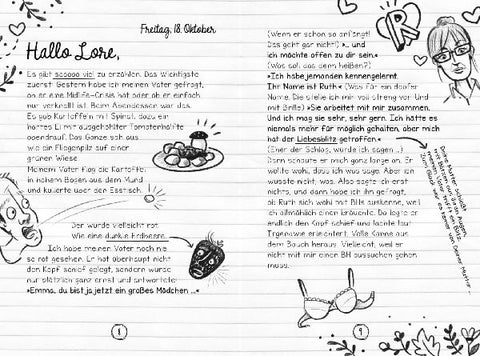 Freitag, 18. Oktober
Hallo Lore,
Es gibt soooo viel zu erzählen. Das Wichtigste
zuerst: Gestern habe ich meinen Vater gefragt,
ob er eine Midlife-Crisis hat oder ob er einfach
nur verknallt ist. Beim Abendessen war das.
Es gab Kartoffeln mit Spinat, dazu ein
hartes Ei mit ausgehöhlter Tomatenhälfte
obendrauf. Das Ganze sah aus
wie ein Fliegenpilz auf einer
grünen Wiese.
Meinem Vater fiel die Kartoffel
in hohem Bogen aus dem Mund
und kullerte über den Esstisch.
Der wurde vielleicht rot.
Wie eine dunkle Erdbeere.
Ich habe meinen Vater noch nie
so rot gesehen. Er hat überhaupt nicht
den Kopf schief gelegt, sondern wurde
nur plötzlich ganz ernst und antwortete:
»Emma, du bist ja jetzt ein großes Mädchen ...«
8
(Wenn er schon so anfängt!
Das geht gar nicht!) »... und
ich möchte offen zu dir sein.«
(Was soll das denn heißen?)
»Ich habe jemanden kennengelernt.
Ihr Name ist Ruth.« (Was für ein doofer
Name. Die stelle ich mir voll streng vor. Und
mit Brille.) »Sie arbeitet mit mir zusammen.
Und ich mag sie sehr, sehr gern. Ich hätte es
niemals mehr für möglich gehalten, aber mich
hat der Liebesblitz getroffen.«
(Eher der Schlag, würde ich sagen ...)
Dann schaute er mich ganz lange an. Er
wollte wohl, dass ich was sage. Aber ich
wusste nicht, was. Also sagte ich erst
nichts, und dann habe ich ihn gefragt,
ob Ruth sich wohl mit BHs auskenne, weil
ich allmählich einen bräuchte. Da legte er
endlich den Kopf schief und lachte laut.
Irgendwie erleichtert. Volle Kanne aus
dem Bauch heraus. Vielleicht, weil er
nicht mit mir einen BH aussuchen gehen
muss.
9
R